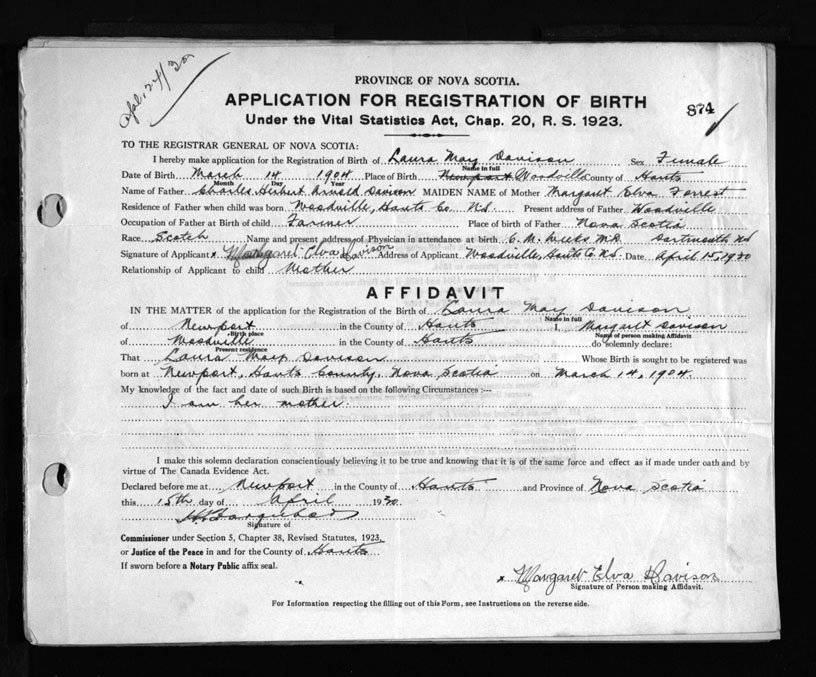 Apl. 24/30
PROVINCE OF NOVA SCOTIA.
APPLICATION FOR REGISTRATION OF BIRTH
874
Under the Vital Statistics Act, Chap. 20, R. S. 1923.
TO THE REGISTRAR GENERAL OF NOVA SCOTIA:
I hereby make application for the Registration of Birth of Laura May Davison Sex Female
Name in full
Date of Birth March 14 1904 Place of Birth Newport Woodville County of Hants
Month Day Year
Name of Father Charles Herbert Arnold Davison MAIDEN NAME of Mother Margaret Elva Forrest
Residence of Father when child was born Woodville, Hants Co N.S. Present address of Father Woodville
Occupation of Father at Birth of child Farmer Place of birth of Father Nova Scotia
Race Scotch Name and present address of Physician in attendance at birth M.D. Dartmouth N.S
Signature of Applicant x Margaret Elva Davison Address of Applicant Woodville, Hants Co N.S. Date April 15, 1930
Relationship of Applicant to child Mother
AFFIDAVIT
IN THE MATTER of the application for the Registration of the Birth of Laura May Davison
Name in full
of Newport in the County of Hants I, Margaret Davison
Birth place Name of person making Affidavit
of Woodville in the County of Hants do solemnly declare:
Present residence
That Laura May Davison Whose Birth is sought to be registered was
born at Newport, Hants County, Nova Scotia on March 14, 1904.
My knowledge of the fact and date of such Birth is based on the following Circumstances :—
I am her mother.
I make this solemn declaration conscientiously believing it to be true and knowing that it is of the same force and effect as if made under oath and by
virtue of The Canada Evidence Act.
Declared before me at Newport in the County of Hants and Province of Nova Scotia
this 15th day of April 1930
Signature of
Commissioner under Section 5, Chapter 38, Revised Statutes, 1923,
or Justice of the Peace in and for the County of Hants
If sworn before a Notary Public affix seal.
x Margaret Elva Davison
Signature of Person making Affidavit.
For Information respecting the filling out of this Form, see Instructions on the reverse side.